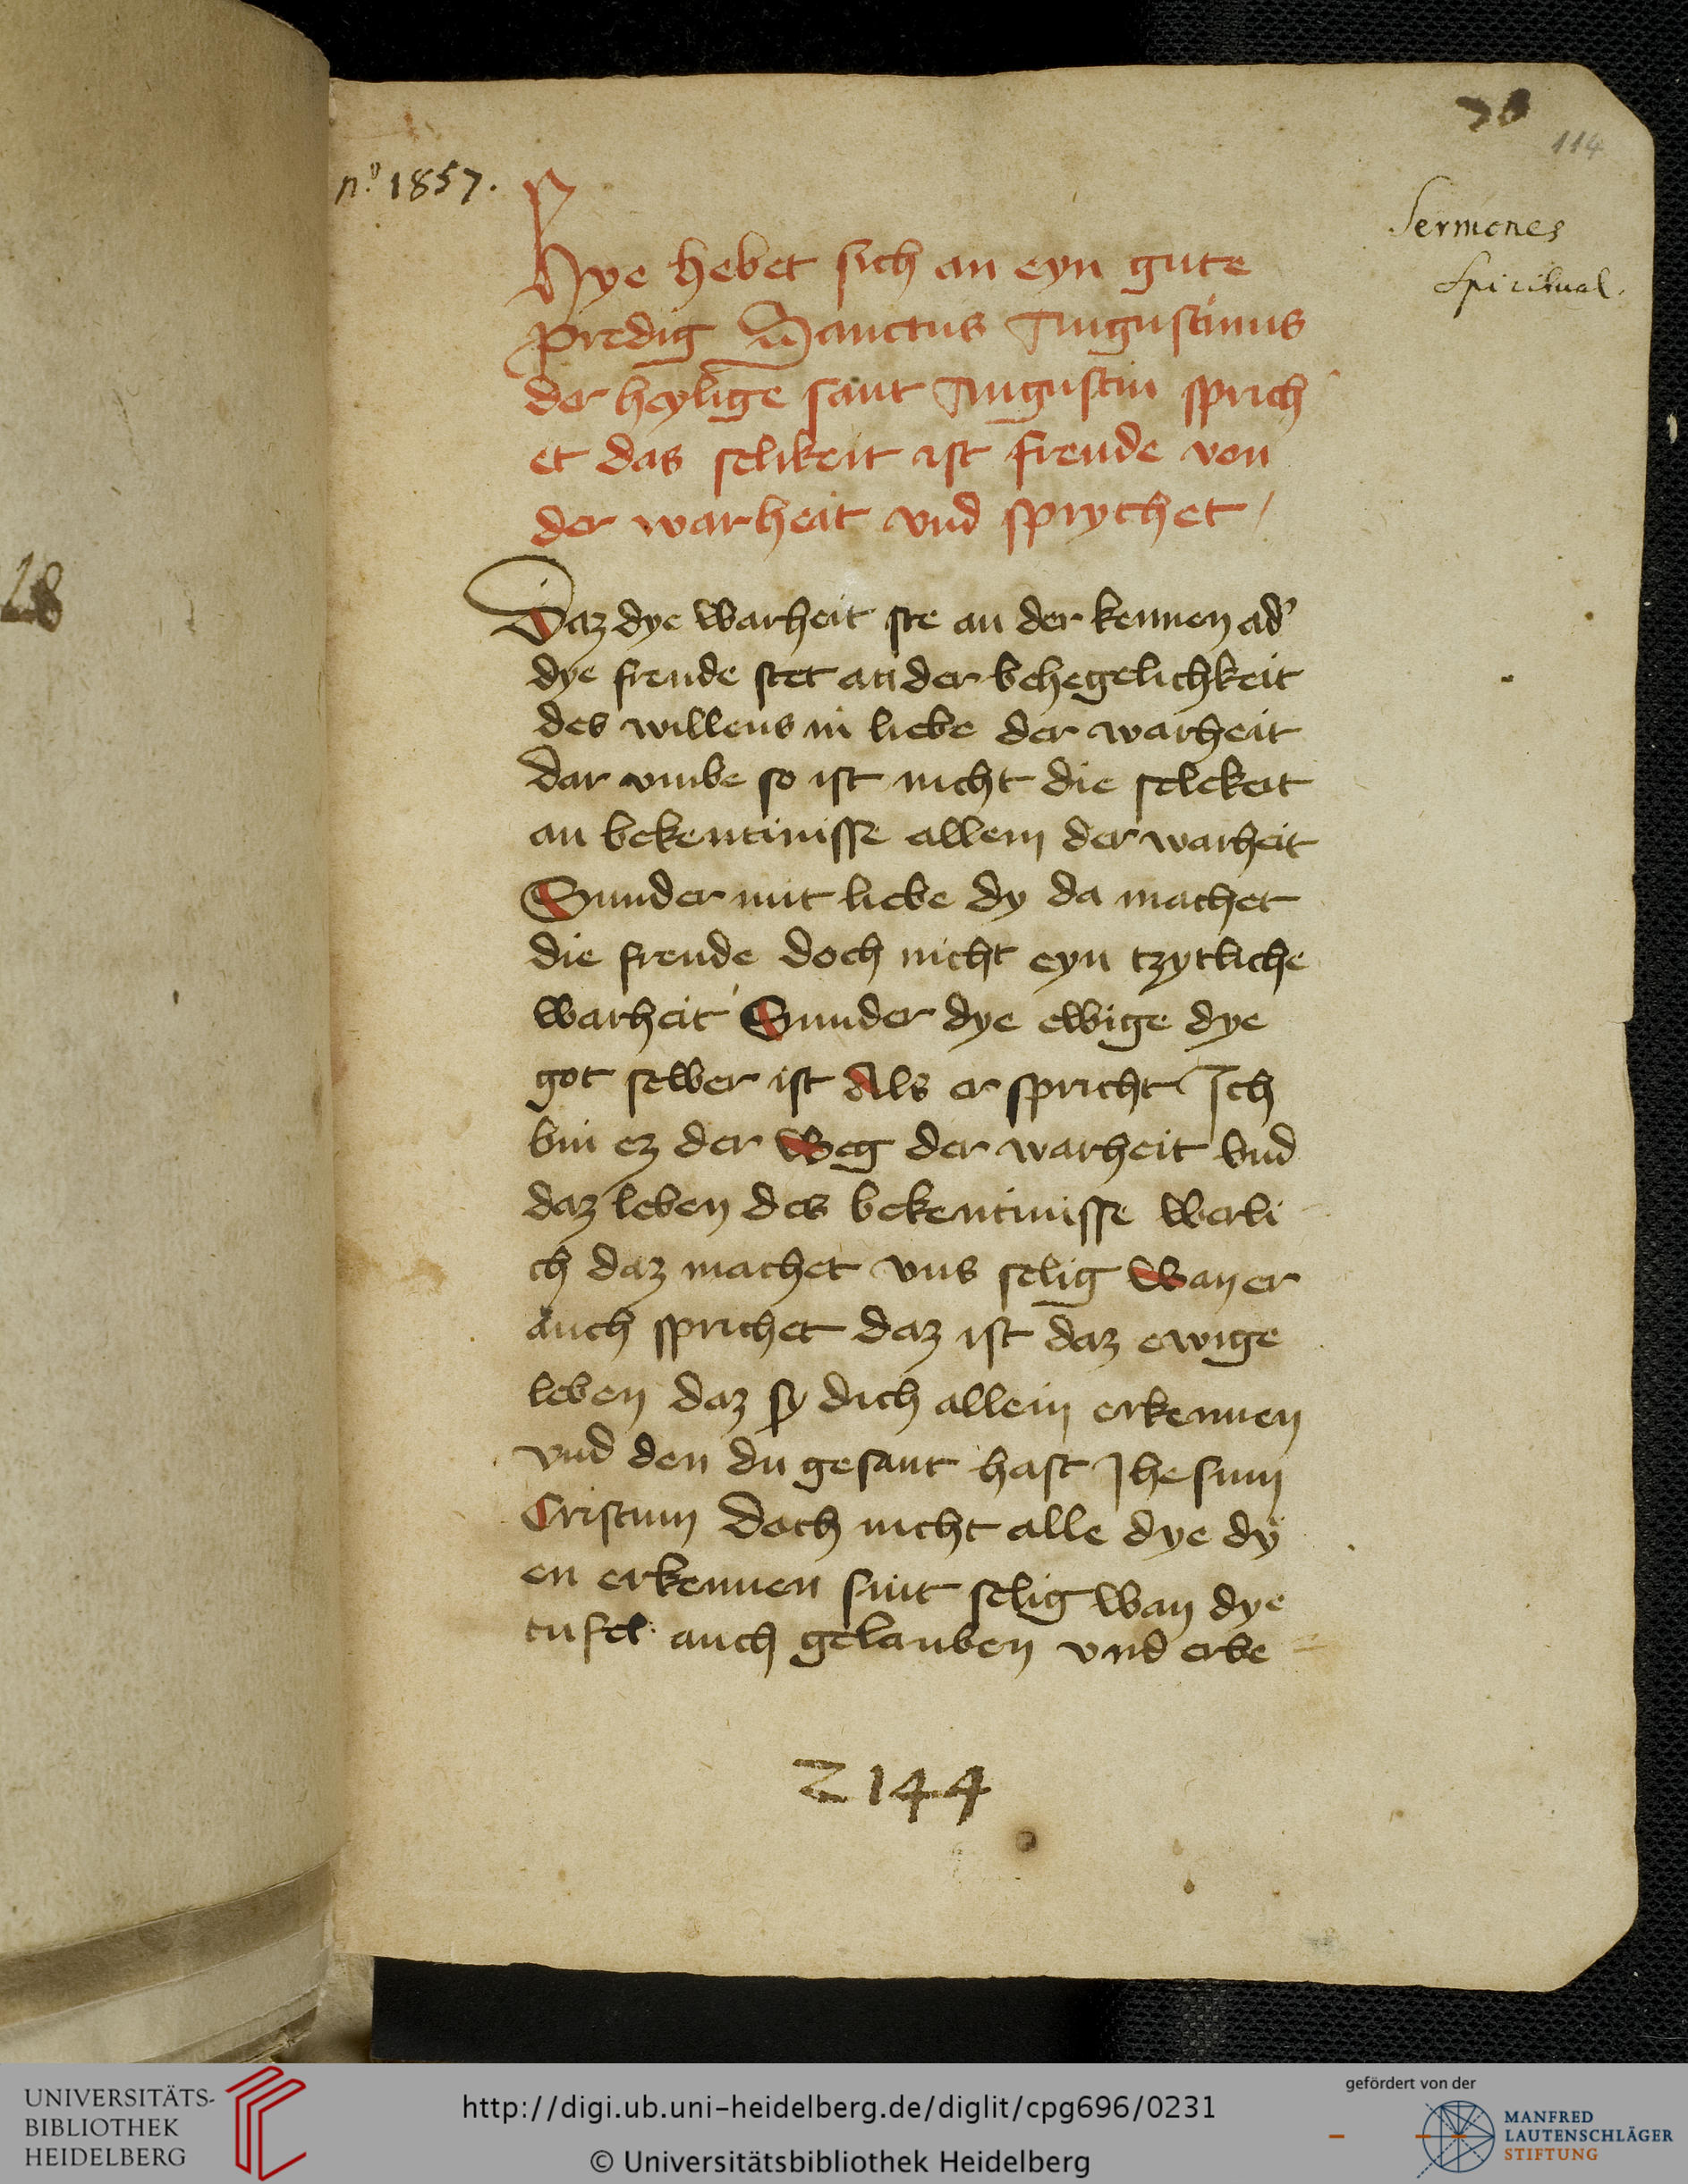 28
70
114
n.º 1857.
Sermones
Spiritual.
Hye hebet sich an eyn gute
predig Sanctus Augustinus
der heylige sant Augustin sprich
et das selikeit ist freude von
der warheit vnd sprychet /
Daz dye warheit ste an der kennen ad'
dye freude stet an der behegelichkeit
des willens in liebe der warheit
dar vmbe so ist nicht die selekeit
an bekentnisse allein der warheit
Sunder mit liebe dy da machet
die freude doch nicht eyn tzytliche
warheit Sunder dye ewige dye
got selber ist Als er spricht Ich
bin ez der weg der warheit vnd
daz leben des bekentnisse werli
ch daz machet vns selig Wan er
auch sprichet daz ist daz ewige
leben daz sy dich allein erkennen
vnd den du gesant hast Jhesum
Cristum doch nicht alle dye dy
en erkennen sint selig wan dye
tufel auch gelauben vnd erbe
2144
UNIVERSITÄTS-
BIBLIOTHEK
HEIDELBERG
http://digi.ub.uni-heidelberg.de/diglit/cpg696/0231
© Universitätsbibliothek Heidelberg
gefördert von der
MANFRED
LAUTENSCHLÄGER
STIFTUNG